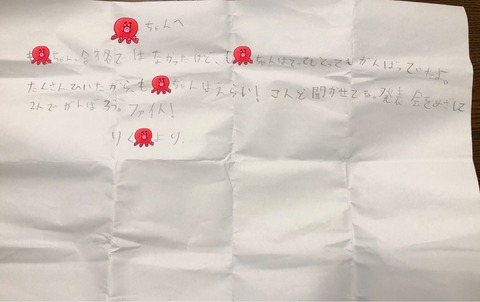 ちゃんへ
も ちゃん。合格で はなかったけど、も ちゃんはとってもとってもがんばっていたよ。
たくさんひいたから、も ちゃんはえらい！ こんど聞かせてね。発表会をめざして
2人でがんばろう。ファイト！
りく より。